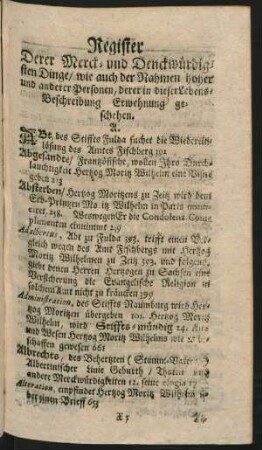 Register
Derer Merck- und Denckwürdig-
sten Dinge/ wie auch der Nahmen hoher
und anderer Personen, derer in dieser Lebens-
Beschreibung Erwehnung ge-
schehen.
A.
Abt des Stiffts Fulda suchet die Wiedereinl-
lösung des Amtes Fischberg
Abgesandte/ Französische, wollen Ihro Durch-
lauchtigkeit Hertzog Moritz Wilhelm eine
geben
Absterben/ Hertzog Moritzens zu Zeitz wird dem
Erb-Printzen Moritz Wilhelm in Paris
238. Weswegen Er die Condolenz Com-
plimenten einnimmt 239
Adalbertus, Abt zu Fulda 303. trifft einen Ver-
gleich wegen des Amt Fischbergs mit Hertzog
Moritz Wilhelmen zu Zeitz 303. und
denen Herren Hertzogen zu Sachsen eine
Versicherung die Evangelische Religion in
solchem Amt nicht zu kräncken
Administration, des Stiffts Naumburg wird Her-
tzog Moritzen übergeben 101. Hertzog Moritz
Wilhelm, wird Stiffts-mündig 24.
und Wesen Hertzog Moritz Wilhelms wie
schaffen gewesen 661
Albrechts, des Behertzten
Albertinischer Linie Geburth/ Thaten und
andere Merckwürdigkeiten 12. seine
Alteration, empfindet Hertzog Moritz Wilhelm
einen Brieff